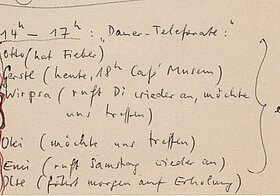 14ʰ – 17ʰ: "Dauer-Telefonate:"
Otto (hat Fieber)
Gerstl (heute, 18ʰ Café Museum)
Wirpsa (ruft Di wieder an, möchte
uns treffen)
Oki (möchte uns treffen)
Emi (ruft Samstag wieder an)
Ilse (fährt morgen auf Erholung)